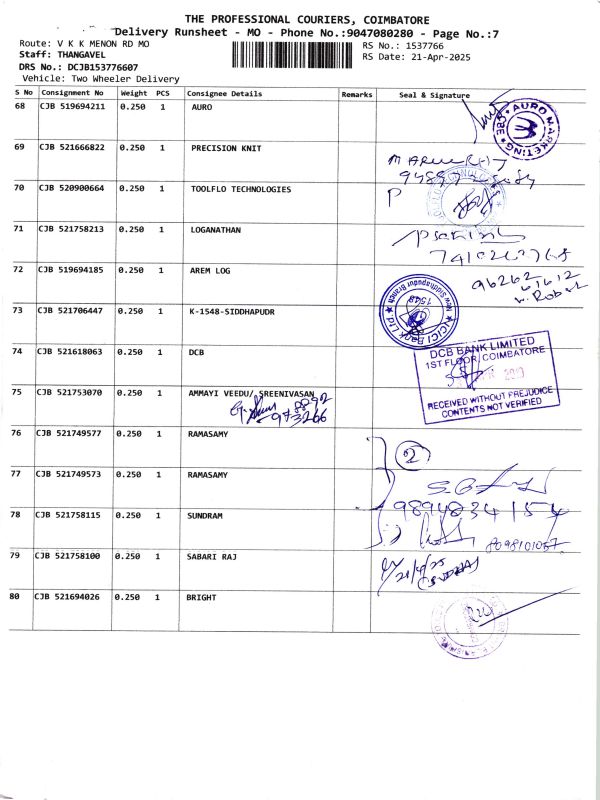 THE PROFESSIONAL COURIERS, COIMBATORE
Delivery Runsheet - MO - Phone No.:9047080280 - Page No.:7
Route: V K K MENON RD MO
RS No.: 1537766
Staff: THANGAVEL
RS Date: 21-Apr-2025
DRS No.: DCJB153776607
Vehicle: Two Wheeler Delivery
S No Consignment No Weight PCS Consignee Details Remarks Seal & Signature
68 CJB 519694211 0.250 1 AURO
AURO MARKETING
69 CJB 521666822 0.250 1 PRECISION KNIT
70 CJB 520900664 0.250 1 TOOLFLO TECHNOLOGIES
P
71 CJB 521758213 0.250 1 LOGANATHAN
72 CJB 519694185 0.250 1 AREM LOG
96262
73 CJB 521706447 0.250 1 K-1548-SIDDHAPUDR
ICICI Bank Ltd
New Siddhapudur Branch
1548
74 CJB 521618063 0.250 1 DCB
DCB BANK LIMITED
1ST FLOOR, COIMBATORE
RECEIVED WITHOUT PREJUDICE
CONTENTS NOT VERIFIED
75 CJB 521753070 0.250 1 AMMAYI VEEDU/ SREENIVASAN
76 CJB 521749577 0.250 1 RAMASAMY
2
77 CJB 521749573 0.250 1 RAMASAMY
78 CJB 521758115 0.250 1 SUNDRAM
9894834154
79 CJB 521758100 0.250 1 SABARI RAJ
21/4/25
80 CJB 521694026 0.250 1 BRIGHT